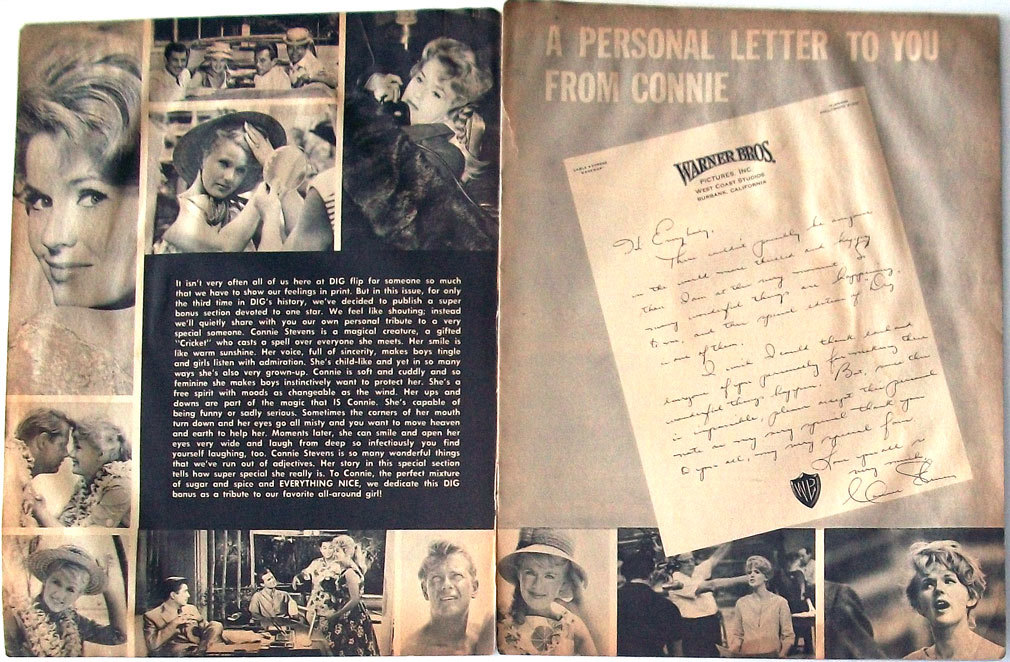 It isn't very often all of us here at DIG flip for someone so much
that we have to show our feelings in print. But in this issue, for only
the third time in DIG's history, we've decided to publish a super
bonus section devoted to one star. We feel like shouting; instead
we'll quietly share with you our own personal tribute to a very
special someone. Connie Stevens is a magical creature, a gifted
"Cricket" who casts a spell over everyone she meets. Her smile is
like warm sunshine. Her voice, full of sincerity, makes boys tingle
and girls listen with admiration. She's child-like and yet in so many
ways she's also very grown-up. Connie is soft and cuddly and so
feminine she makes boys instinctively want to protect her. She's a
free spirit with moods as changeable as the wind. Her ups and
downs are part of the magic that IS Connie. She's capable of
being funny or sadly serious. Sometimes the corners of her mouth
turn down and her eyes go all misty and you want to move heaven
and earth to help her. Moments later, she can smile and open her
eyes very wide and laugh from deep so infectiously you find
yourself laughing, too. Connie Stevens is so many wonderful things
that we've run out of adjectives. Her story in this special section
tells how super special she really is. To Connie, the perfect mixture
of sugar and spice and EVERYTHING NICE, we dedicate this DIG
bonus as a tribute to our favorite all-around girl!
A PERSONAL LETTER TO YOU
FROM CONNIE
WARNER BROS.
PICTURES, INC.
WEST COAST STUDIOS
BURBANK, CALIFORNIA
Hi Everybody,
There couldn't possibly be anyone
in the world more thrilled and happy
than I am at this very moment. So
many wonderful things are happening
to me, and this special edition of Dig
one of them.
I wish I could thank each and
everyone of you personally for making these
wonderful things happen. But, since this
is impossible, please accept this personal
note as my very special thank you
to you all, my very special fans.
Love you all so
very much,
Connie Stevens
WB